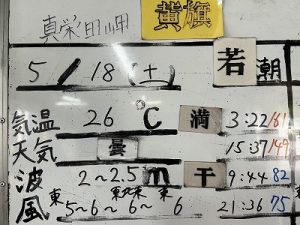 真栄田岬 黄旗
5/18(土) 若 潮
気温 26℃ 満 3:22 161
天気 曇 15:37 149
波 2~2.5m 干 9:44 82
風 東 5~6~ 東北東 6~ 東 6 21:36 75